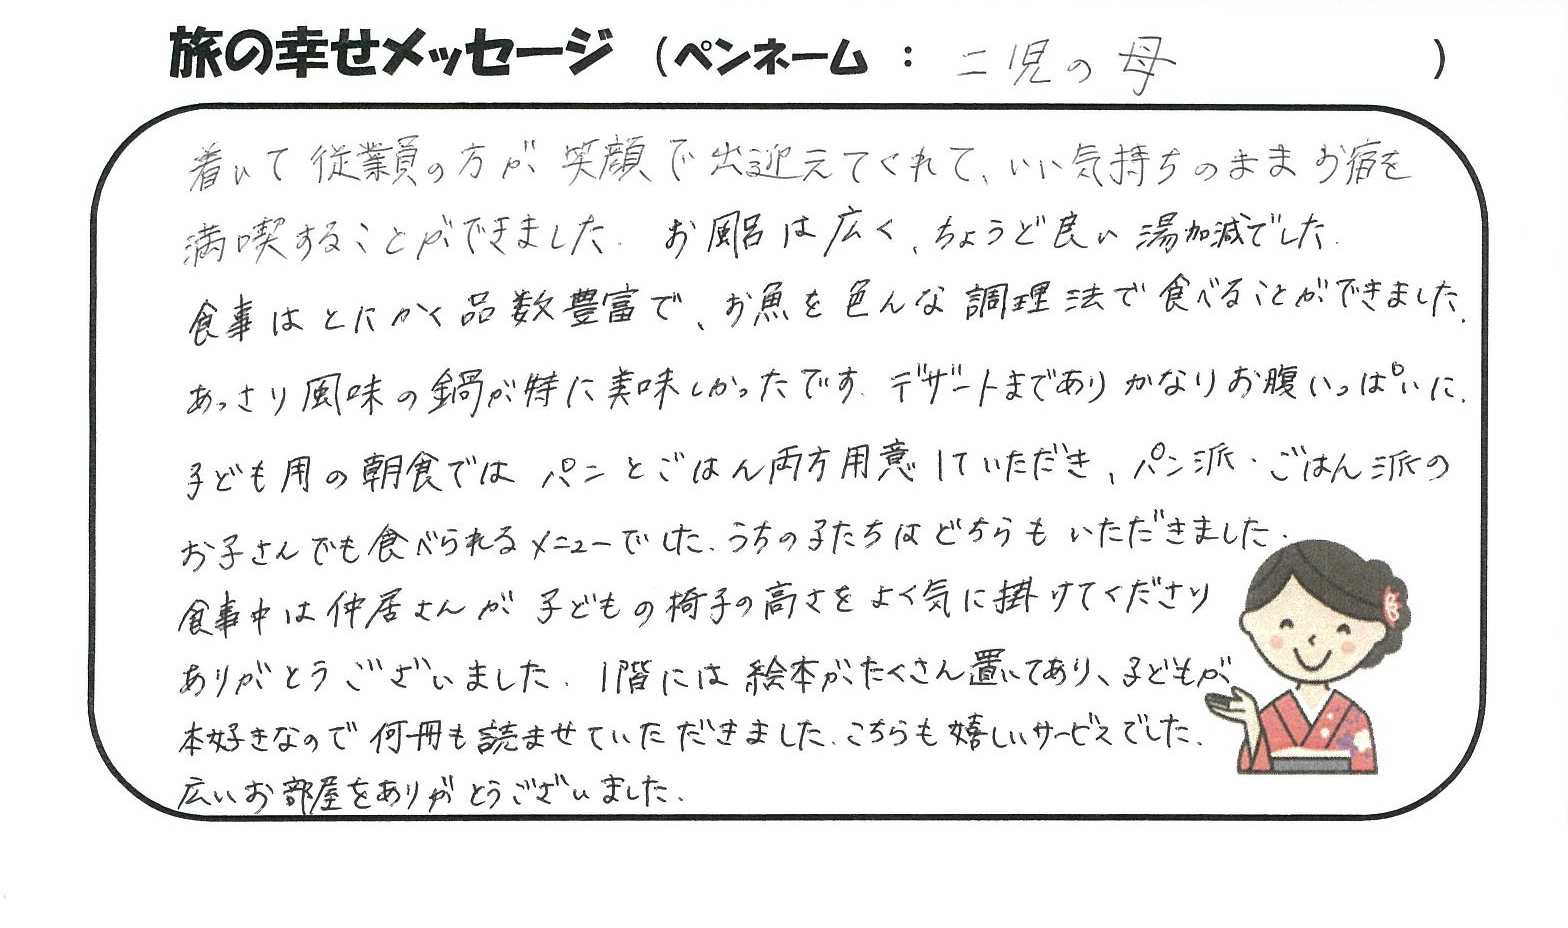 旅の幸せメッセージ（ペンネーム：二児の母）
着いて従業員の方が笑顔で出迎えてくれて、いい気持ちのままお宿を
満喫することができました。お風呂は広く、ちょうど良い湯加減でした。
食事はとにかく品数豊富で、お魚を色んな調理法で食べることができました。
あっさり風味の鍋が特に美味しかったです。デザートまでありかなりお腹いっぱいに。
子ども用の朝食ではパンとごはん両方用意していただき、パン派・ごはん派の
お子さんでも食べられるメニューでした。うちの子たちはどちらもいただきました。
食事中は仲居さんが子どもの椅子の高さをよく気に掛けてくださり
ありがとうございました。1階には絵本がたくさん置いてあり、子どもが
本好きなので何冊も読ませていただきました。こちらも嬉しいサービスでした。
広いお部屋をありがとうございました。